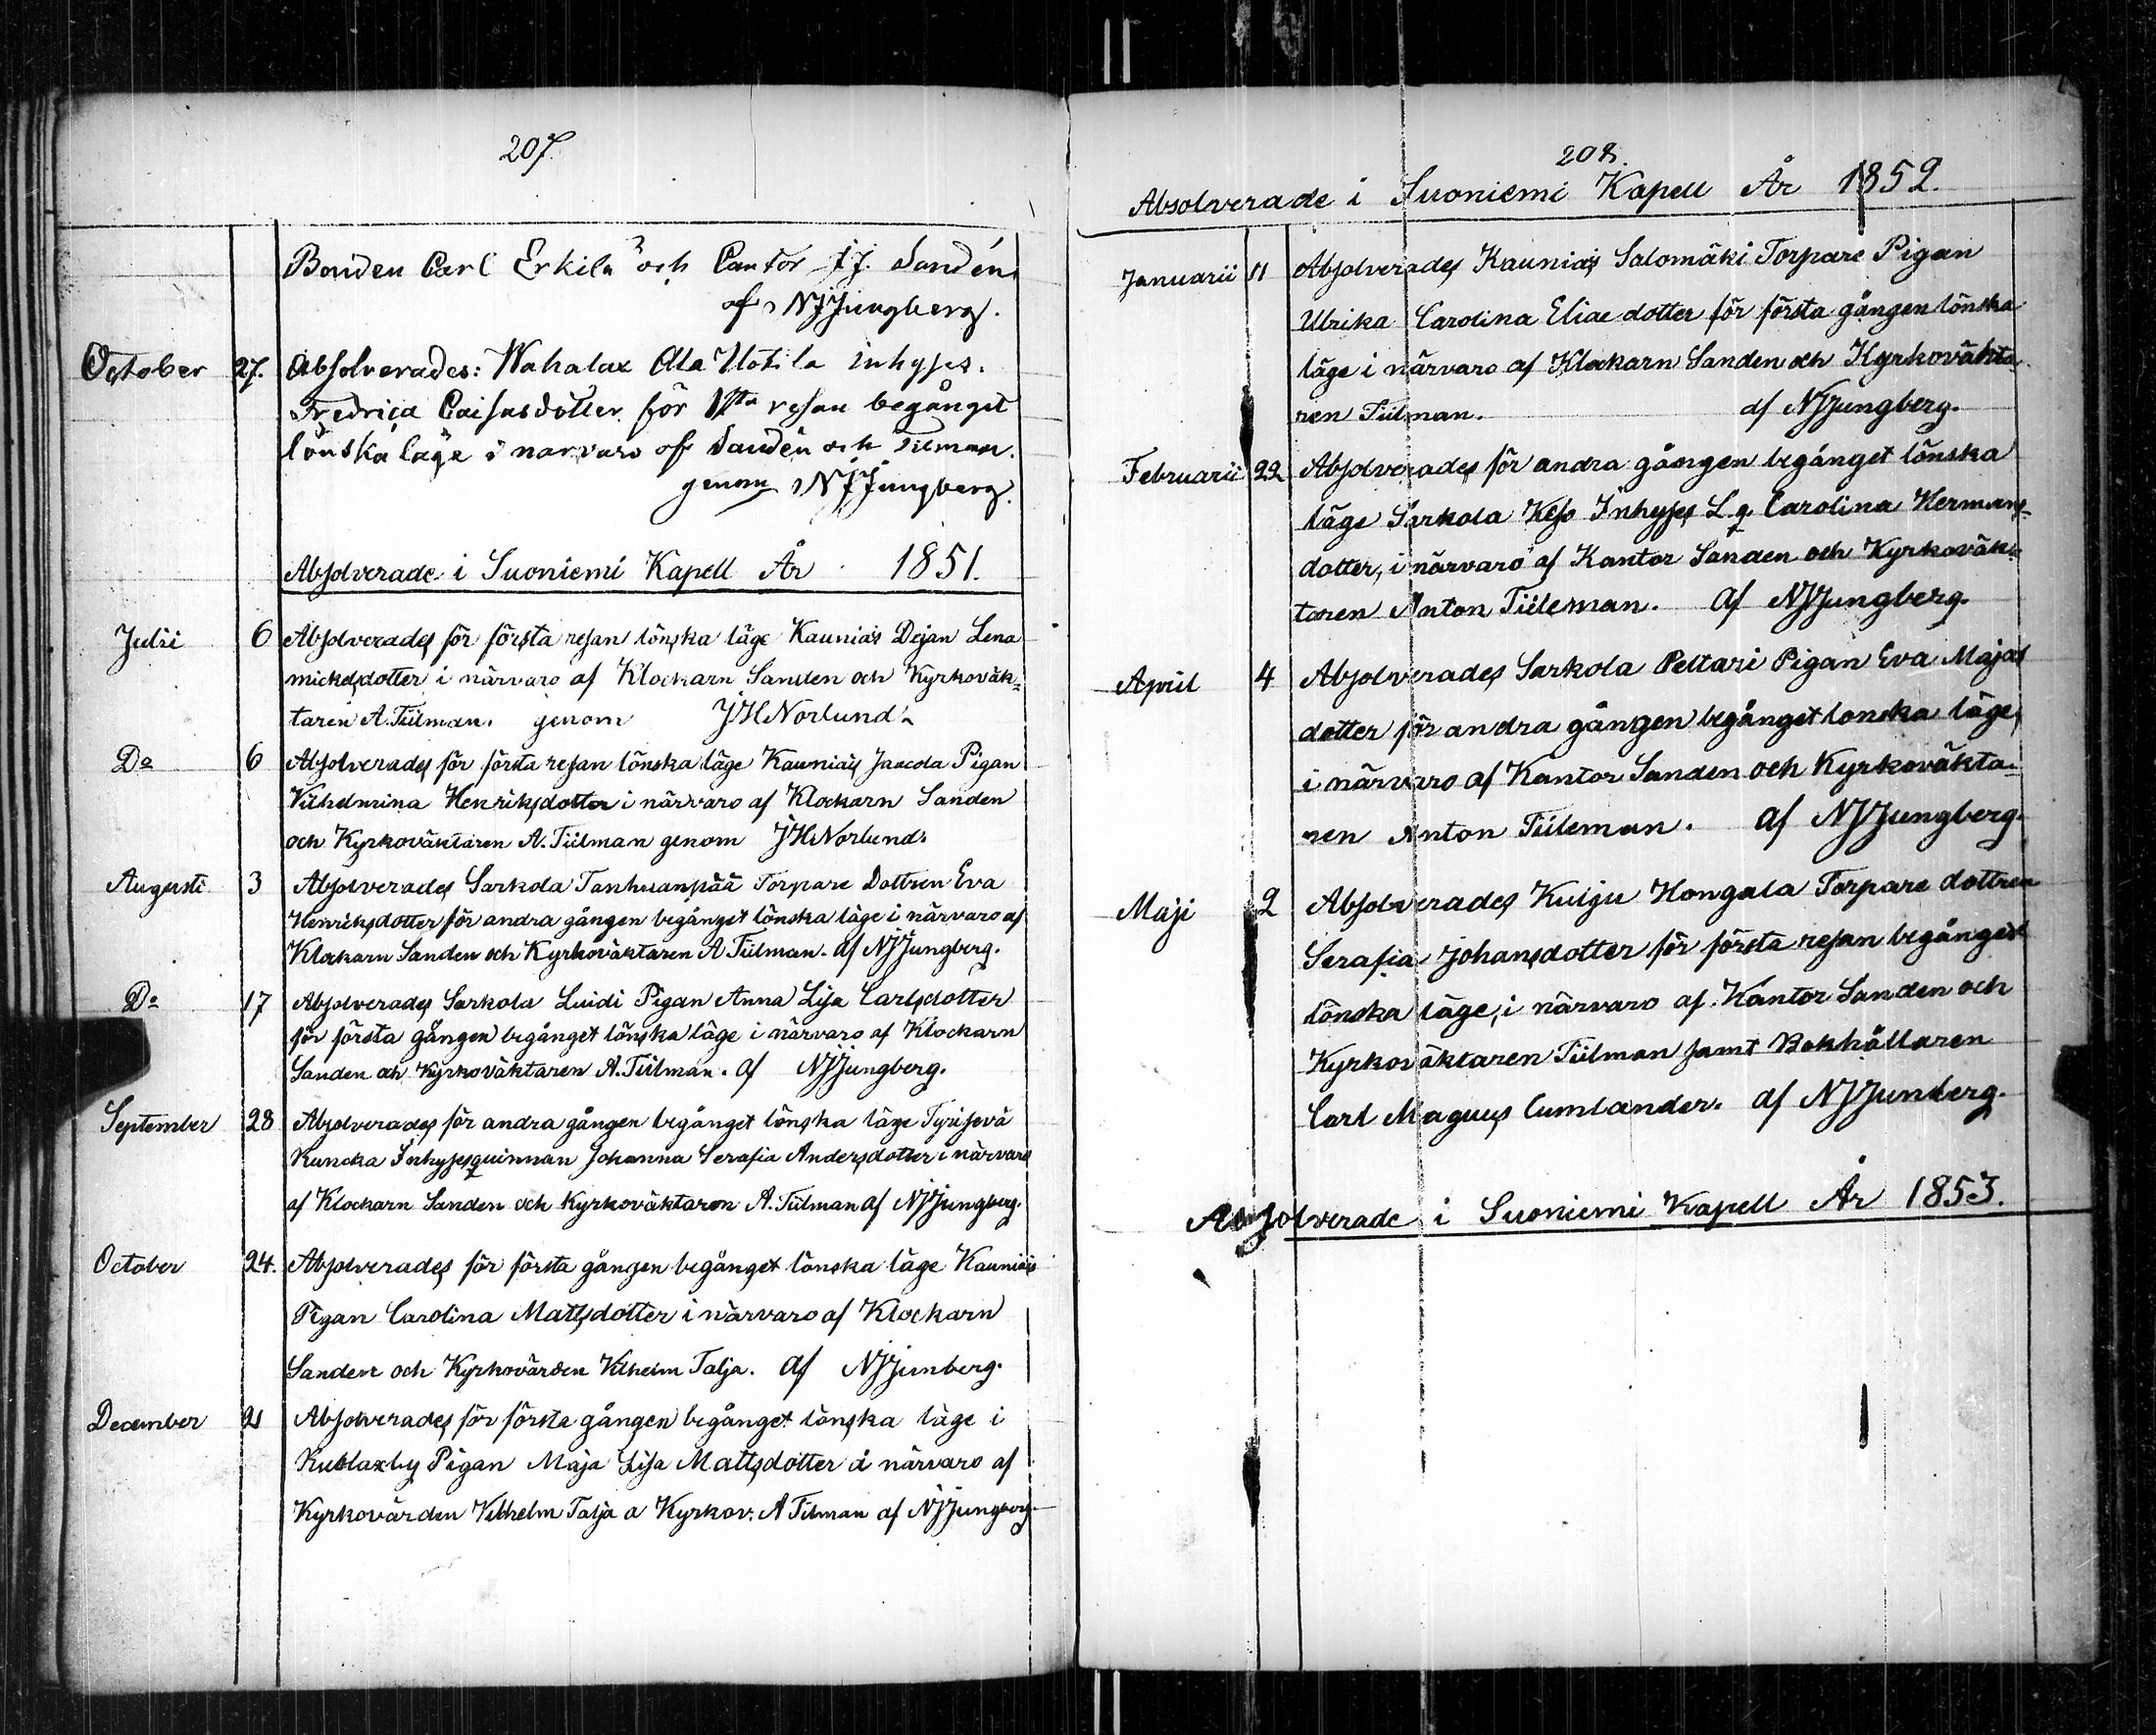 207.
Bonden Carl Erkilä och Cantor J.J. Sandén
af NJJungberg.
October 27. Absolverades: Wahalax Ala Uotila inhyses.
Fredrica Caisasdotter för 1sta resan begånget
lönska läge i narvaro af Sandén och Tilman.
genom NJJungberg.
Absolverade i Suoniemi Kapell År 1851.
Julii 6 Absolverades för första resan lönska läge Kauniais Dejan Lena
mickelsdotter i närvaro af Klockarn Sanden och Kyrkoväk=
taren A. Tiilman. genom JHNorlund
Do 6 Absolverades för första resan lönska läge Kauniais Jaacola Pigan
Vilhelmina Henriksdotter i närvaro af Klockarn Sanden
och Kyrkoväktaren A. Tiilman genom JHNorlund.
Augusti 3 Absolverades Sarkola Tanhuanpää Torpare Dottren Eva
Henriksdotter för andra gången begånget lönska läge i närvaro af
Klockarn Sanden och Kyrkoväktaren A Tiilman. af NJJungberg.
Do 17 Absolverades Sarkola Luidi Pigan Anna Lisa Carlsdotter
för första gången begånget lönska läge i närvaro af Klockarn
Sanden och Kyrkoväktaren A. Tiilman. af NJJungberg.
September 28 Absolverades för andra gången begånget lönska läge Tyrisevä
Kuncka Inhysesquinnan Johanna Serafia Andersdotter i närvaro
af Klockarn Sanden och Kyrkoväktaren A. Tiilman af NJJungberg.
October 24. Absolverades för första gången begånget lönska läge Kauniais
Pigan Carolina Mattsdotter i närvaro af Klockarn
Sanden och Kyrkovärden Vilhelm Talja. af NJJunberg.
December 21 Absolverades för första gången begånget lönska läge i
Kublaxby Pigan Maja Lisa Mattsdotter i närvaro af
Kyrkovärden Vilhelm Talja o Kyrkov. A Tilman af NJJungberg
208.
Absolverade i Suoniemi Kapell År 1852.
Januarii 11 Absolverades Kauniais Salomäki Torpare Pigan
Ulrika Carolina Eliae dotter för första gången lönska
läge i närvaro af Klockarn Sanden och Kyrkoväkta
ren Tiilman. af NJJungberg.
Februarii 22 Absolverades för andra gången begånget lönska
läge Sarkola Keso Inhyses L.q. Carolina Hermans=
dotter, i närvaro af Kantor Sanden och Kyrkoväk=
taren Anton Tiileman. af NJJungberg.
April 4 Absolverades Sarkola Peltari Pigan Eva Majas
dotter för andra gången begånget lonska läge,
i närvaro af Kantor Sanden och Kyrkoväkta=
ren Anton Tiileman. af NJJungberg.
Maji 2 Absolverades Kulju Hongala Torpare dottren
Serafia Johansdotter för första resan begånget
lönska läge, i närvaro af Kantor Sanden och
Kyrkoväktaren Tiilman samt Bokhållaren
Carl Magnus Cumlander. af NJJunberg.
Absolverade i Suoniemi Kapell År 1853.